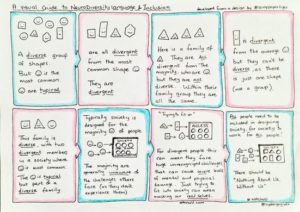 A Visual Guide to Neurodiversity language & Inclusion
developed from a design by
A diverse group
of shapes.
But is the
most common
are typical
are all divergent
from the most
common shape
They are
divergent
Here is a family
of They are all
divergent from the
majority, who are
but they are
not diverse (within their
family group they are
all the same.
is divergent
from the average
but they can't
be diverse, as
there is just one
shape
(not a group)
This family
is diverse, with two
divergent members
in a society where
is most common.
The is typical
but part of a
diverse family
Typically society is
designed for the
majority of people
The majority are
generally unaware of
the challenges others
face (as they don't
experience them)
"Trying to fit in"
For divergent people this
can mean they face
huge unnecessary challenges
that can cause large levels
of mental and physical
damage. Just trying to
fit into society can mean
masking our real selves.
All people need to be included
in designing society, for
society to work for all people
There should be
"Nothing About Us,
Without Us"